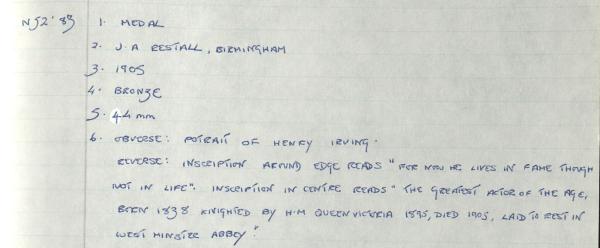 N52'83 1. MEDAL
2. J. A RESTALL, BIRMINGHAM
3. 1905
4. BRONZE
5. 44 mm
6. OBVERSE: POTRAIT OF HENRY IRVING.
REVERSE: INSCRIPTION AROUND EDGE READS "FOR NOW HE LIVES IN FAME THOUGH
NOT IN LIFE". INSCRIPTION IN CENTRE READS "THE GREATEST ACTOR OF THE AGE,
BORN 1838 KNIGHTED BY H.M QUEEN VICTORIA 1895, DIED 1905, LAID TO REST IN
WEST MINSTER ABBEY".